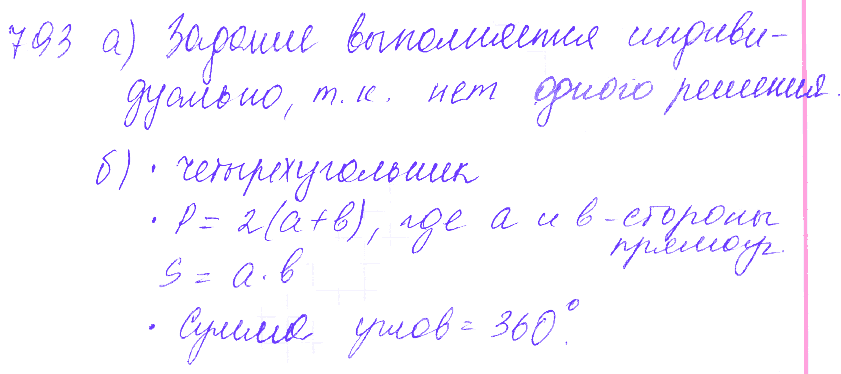 793 а) Задание выполняется индиви-
дуально, т.к. нет одного решения.
б) • четырехугольник
• P = 2(a+b), где a и b - стороны
прямоуг.
S = a · b
• Сумма углов = 360°.